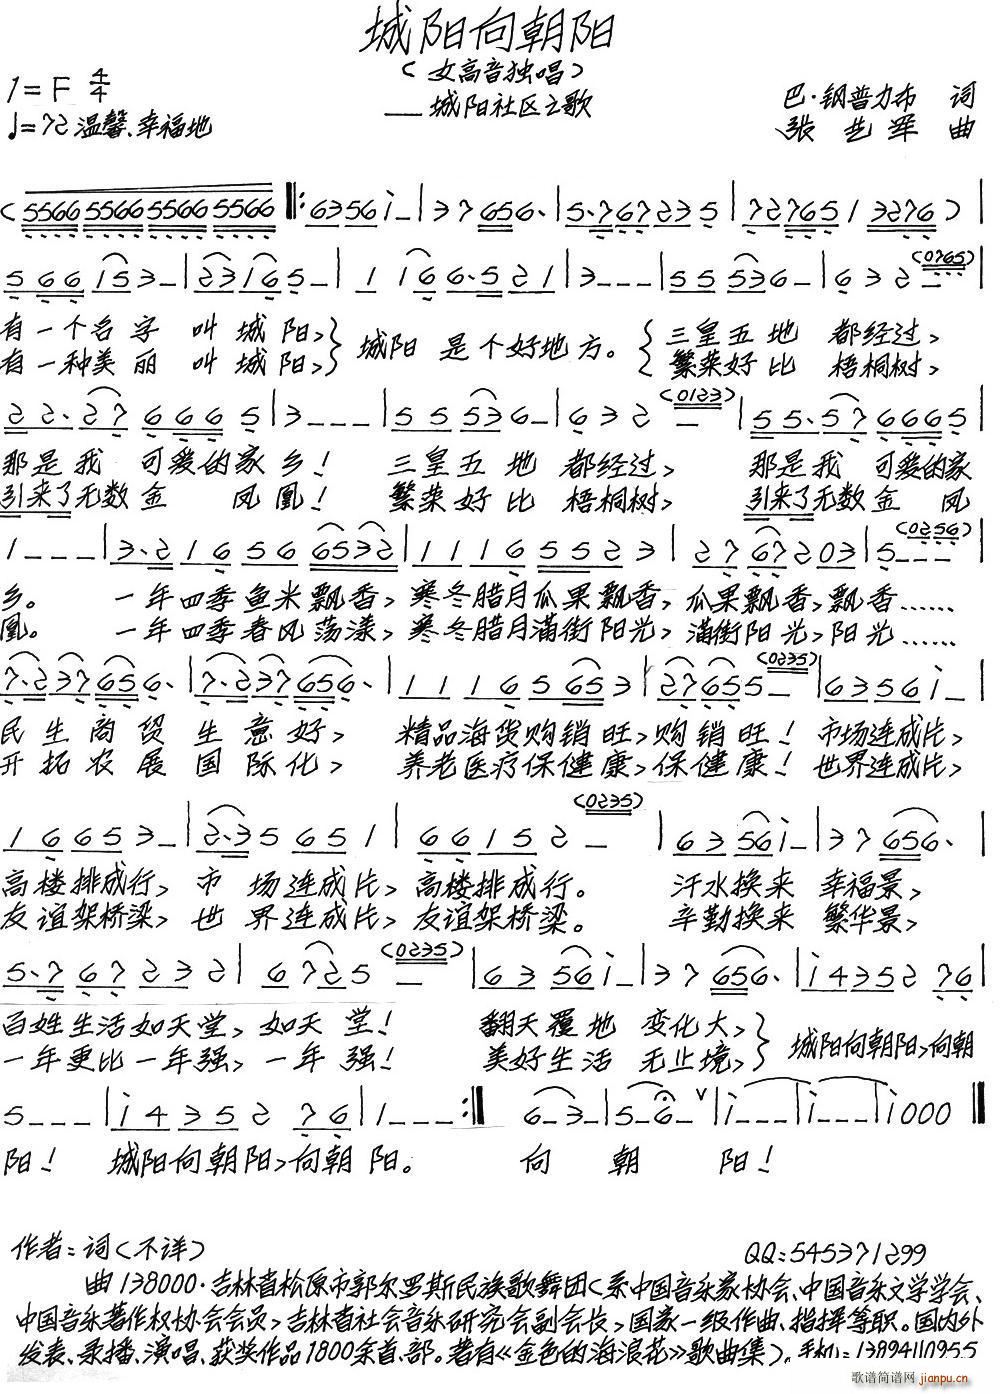 城阳向朝阳
（女高音独唱）
——城阳社区之歌
1=F 4/4
♩=72 温馨、幸福地
巴·钢普力布 词
张艺军 曲
(5566 5566 5566 5566 ‖: 6356 i - | 3 7 656. | 5.767 235 | 72765 1 3276 ) |
566 153 - | 23165 - | 1 166.5 21 | 3 - - - | 55536 - | 632 - (0765) |
有一个名字 叫城阳,} 城阳 是个好地方。 {三皇五地 都经过,
有一种美丽 叫城阳,} {繁荣好比 梧桐树,
22.27 6665 | 3 - - - | 55536 - | 632 - (0123) | 55.57 6665 |
那是我 可爱的家乡! 三皇五地 都经过, 那是我 可爱的家
引来了无数金 凤凰! 繁荣好比 梧桐树, 引来了无数金 凤
1 - - - | 3.216 56 6532 | 1116 5523 | 27672 03 | 5 - - - (0256) |
乡。 一年四季鱼米飘香, 寒冬腊月瓜果飘香, 瓜果飘香, 飘香……
凰。 一年四季春风荡漾, 寒冬腊月满街阳光, 满街阳光, 阳光……
7.237 656. | 7.237 656. | 1116 5653 | 27655 - (0235) | 6356 i - |
民生商贸 生意好, 精品海货购销旺, 购销旺! 市场连成片,
开拓农展 国际化, 养老医疗保健康, 保健康! 世界连成片,
16653 - | 2.35 651 | 66152 - (0235) | 6356 i - | 3 7 656. |
高楼排成行, 市场连成片, 高楼排成行。 汗水换来 幸福景,
友谊架桥梁, 世界连成片, 友谊架桥梁。 辛勤换来 繁华景,
5.767 232 | 6725 - (0235) | 6356 i - | 3 7 656. | i4352 76 |
百姓生活如天堂, 如天堂! 翻天覆地 变化大,} 城阳向朝阳,向朝
一年更比一年强, 一年强! 美好生活 无止境,}
5 - - - | i4352 76 | 1 - - - :‖ 6 - 3 - | 5 - 6 - ∨ | i - - - | i - - - | i 000 ‖
阳! 城阳向朝阳,向朝阳。 向朝阳!
作者：词（不详）
QQ：545371299
曲138000·吉林省松原市郭尔罗斯民族歌舞团（系中国音乐家协会、中国音乐文学学会、
中国音乐著作权协会会员，吉林省社会音乐研究会副会长，国家一级作曲、指挥等职。国内外
发表、录播、演唱、获奖作品1800余首、部。著有《金色的海浪花》歌曲集）。手机：13894110955
歌谱简谱网
jianpu.cn